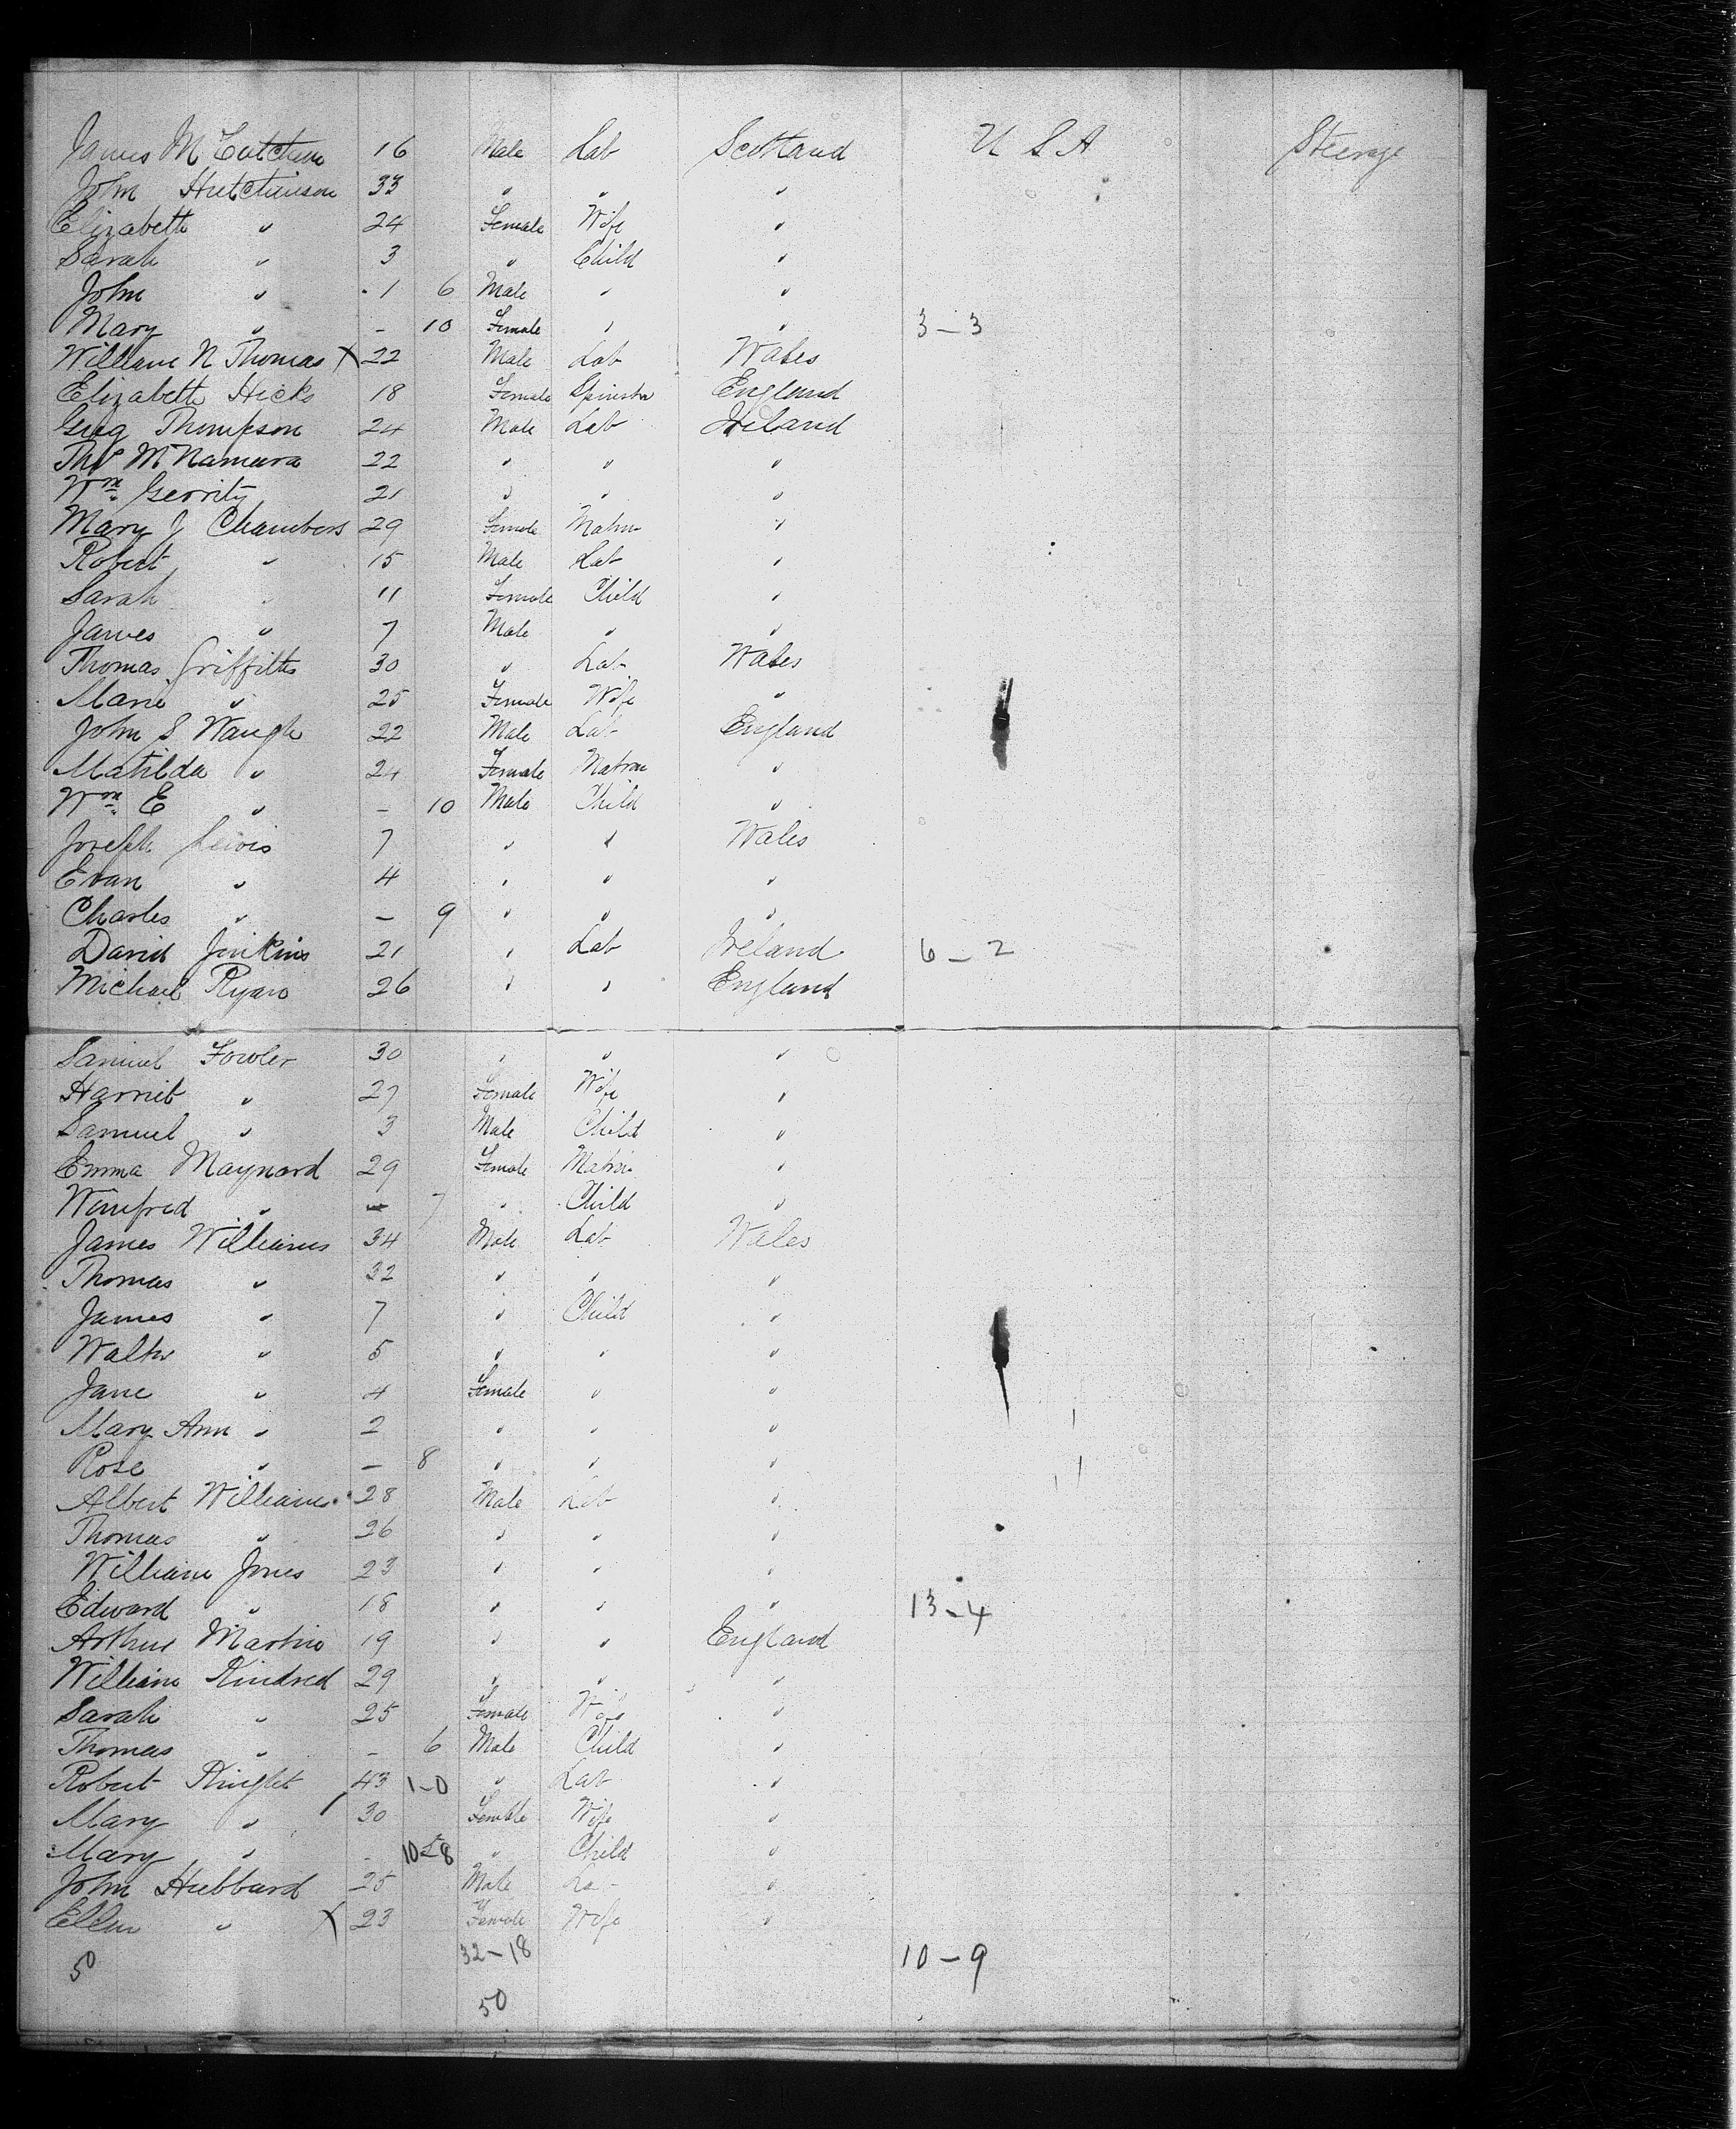 James McCutcheon 16 Male Lab Scotland U S A Steerage
John Hutchinson 33 " " "
Elizabeth " 24 Female Wife "
Sarah " 3 " Child "
John " 1 6 Male " "
Mary " - 10 Female " " 3-3
William N Thomas X 22 Male Lab Wales
Elizabeth Hicks 18 Female Spinster England
Thompson 24 Male Lab Ireland
Thos McNamara 22 " " "
Wm Gerrity 21 " " "
Mary J Chambers 29 Female Matron "
Robert " 15 Male Lab "
Sarah " 11 Female Child "
James " 7 Male " "
Thomas Griffiths 30 " Lab Wales
Marie " 25 Female Wife "
John S Waugh 22 Male Lab England
Matilda " 24 Female Matron "
Wm E " - 10 Male Child "
Joseph Lewis 7 " " Wales
Evan " 4 " " "
Charles " - 9 " " "
David Jinkins 21 " Lab Ireland 6-2
Michael Ryan 26 " " England
Samuel Fowler 30 " " "
Harriet " 27 Female Wife "
Samuel " 3 Male Child "
Emma Maynard 29 Female Matron "
Winifred " - 7 " Child "
James Williams 34 Male Lab Wales
Thomas " 32 " " "
James " 7 " Child "
Walter " 5 " " "
Jane " 4 Female " "
Mary Ann " 2 " " "
Rose " - 8 " " "
Albert Williams 28 Male Lab "
Thomas " 26 " " "
William Jones 23 " " "
Edward " 18 " " " 13-4
Arthur Martin 19 " " England
William Kindred 29 " " "
Sarah " 25 Female Wife "
Thomas " - 6 Male Child "
Robert Knight 43 1-0 " Lab "
Mary " 30 Female Wife "
Mary " - 10-8 " Child "
John Hubbard 25 Male La- "
Ellen " X 23 Female Wife "
50 32-18 10-9
50